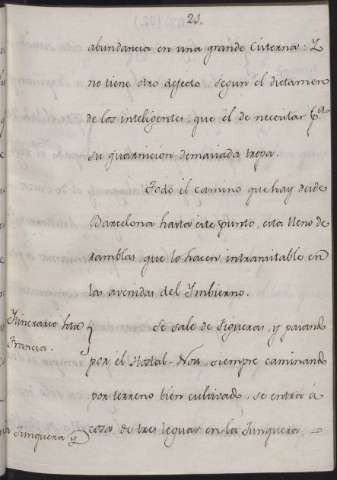 23.
abundancia en una grande Cisterna: Y
no tiene otro defecto segun el dictamen
de los inteligentes que el de necesitar pª
su guarnicion demasiada tropa.
Todo el camino que hay desde
Barcelona hasta este punto, esta lleno de
ramblas que lo hacen intransitable en
las avenidas del Imbierno.
Itinerario hasta
Francia.
Se sale de Figueras, y pasando
por el Hostal-Nou siempre caminando
por terreno bien cultivado, se entra á
cosa de tres leguas en la Junquera,
Junquera